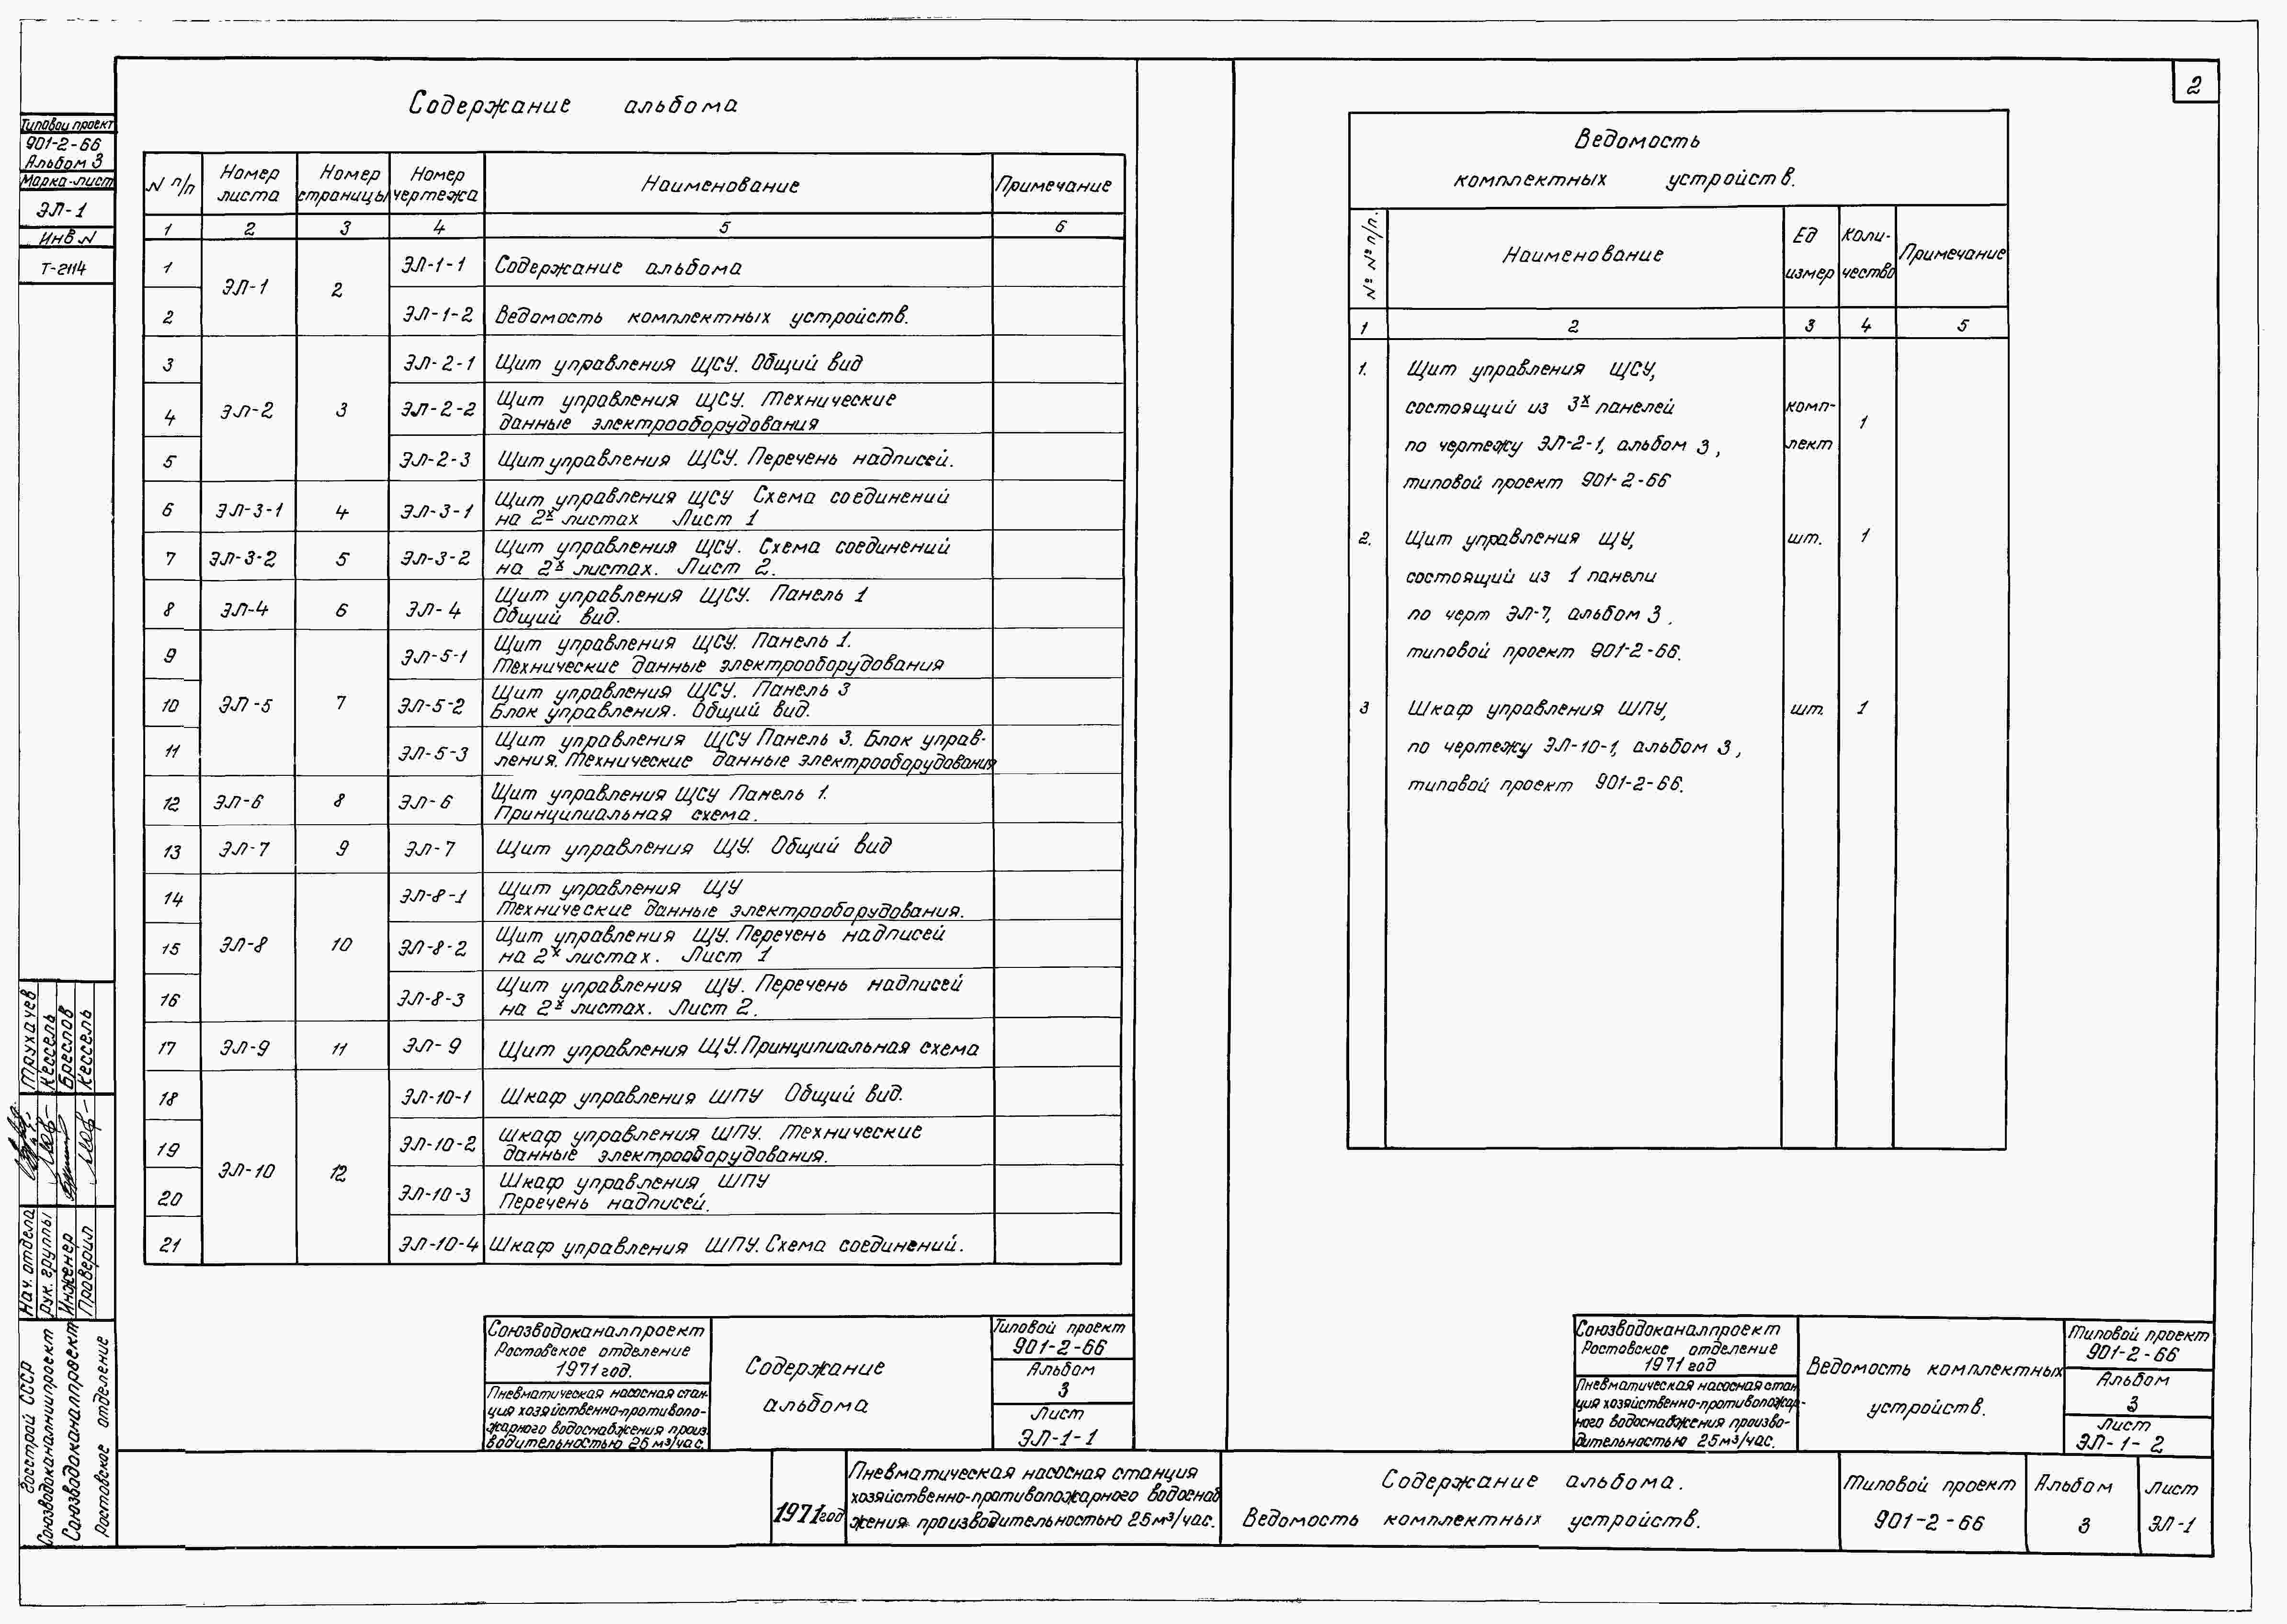 2
Типовой проект
901-2-66
Альбом 3
Марка-лист
ЭЛ-1
Инв N
Т-2114
Содержание альбома
N п/п
Номер листа
Номер страницы
Номер чертежа
Наименование
Примечание
1 2 3 4 5 6
1 ЭЛ-1 2 ЭЛ-1-1 Содержание альбома
2 ЭЛ-1-2 Ведомость комплектных устройств.
3 ЭЛ-2-1 Щит управления ЩСУ. Общий вид
4 ЭЛ-2 3 ЭЛ-2-2 Щит управления ЩСУ. Технические
данные электрооборудования
5 ЭЛ-2-3 Щит управления ЩСУ. Перечень надписей.
6 ЭЛ-3-1 4 ЭЛ-3-1 Щит управления ЩСУ Схема соединений
на 2х листах Лист 1
7 ЭЛ-3-2 5 ЭЛ-3-2 Щит управления ЩСУ. Схема соединений
на 2х листах. Лист 2.
8 ЭЛ-4 6 ЭЛ-4 Щит управления ЩСУ. Панель 1
Общий вид.
9 ЭЛ-5-1 Щит управления ЩСУ. Панель 1.
Технические данные электрооборудования
10 ЭЛ-5 7 ЭЛ-5-2 Щит управления ЩСУ. Панель 3
Блок управления. Общий вид.
11 ЭЛ-5-3 Щит управления ЩСУ Панель 3. Блок управ-
ления. Технические данные электрооборудования
12 ЭЛ-6 8 ЭЛ-6 Щит управления ЩСУ Панель 1.
Принципиальная схема.
13 ЭЛ-7 9 ЭЛ-7 Щит управления ЩУ. Общий вид
14 ЭЛ-8-1 Щит управления ЩУ
Технические данные электрооборудования.
15 ЭЛ-8 10 ЭЛ-8-2 Щит управления ЩУ. Перечень надписей
на 2х листах. Лист 1
16 ЭЛ-8-3 Щит управления ЩУ. Перечень надписей
на 2х листах. Лист 2.
17 ЭЛ-9 11 ЭЛ-9 Щит управления ЩУ. Принципиальная схема
18 ЭЛ-10-1 Шкаф управления ШПУ Общий вид.
19 ЭЛ-10-2 Шкаф управления ШПУ. Технические
данные электрооборудования.
ЭЛ-10 12
20 ЭЛ-10-3 Шкаф управления ШПУ
Перечень надписей.
21 ЭЛ-10-4 Шкаф управления ШПУ. Схема соединений.
Ведомость
комплектных устройств.
№ № п/п.
Наименование
Ед измер
Коли-
чество
Примечание
1 2 3 4 5
1. Щит управления ЩСУ,
состоящий из 3х панелей комп- 1
по чертежу ЭЛ-2-1, альбом 3, лект
типовой проект 901-2-66
2. Щит управления ЩУ, шт. 1
состоящий из 1 панели
по черт ЭЛ-7, альбом 3.
типовой проект 901-2-66.
3 Шкаф управления ШПУ, шт. 1
по чертежу ЭЛ-10-1, альбом 3,
типовой проект 901-2-66.
Трухачев
Кессель
Бреслов
Кессель
Нач. отдела
Рук. группы
Инженер
Проверил
Госстрой СССР
Союзводоканалниипроект
Союзводоканалпроект
Ростовское отделение
Союзводоканалпроект
Ростовское отделение
1971 год.
Пневматическая насосная стан-
ция хозяйственно-противопо-
жарного водоснабжения произ-
водительностью 25 м³/час.
Содержание
альбома
Типовой проект
901-2-66
Альбом
3
Лист
ЭЛ-1-1
Союзводоканалпроект
Ростовское отделение
1971 год
Пневматическая насосная стан
ция хозяйственно-противопожар-
ного водоснабжения произво-
дительностью 25м³/час.
Ведомость комплектных
устройств.
Типовой проект
901-2-66
Альбом
3
Лист
ЭЛ-1-2
1971 год
Пневматическая насосная станция
хозяйственно-противопожарного водоснаб
жения производительностью 25м³/час.
Содержание альбома.
Ведомость комплектных устройств.
Типовой проект
901-2-66
Альбом
3
Лист
ЭЛ-1